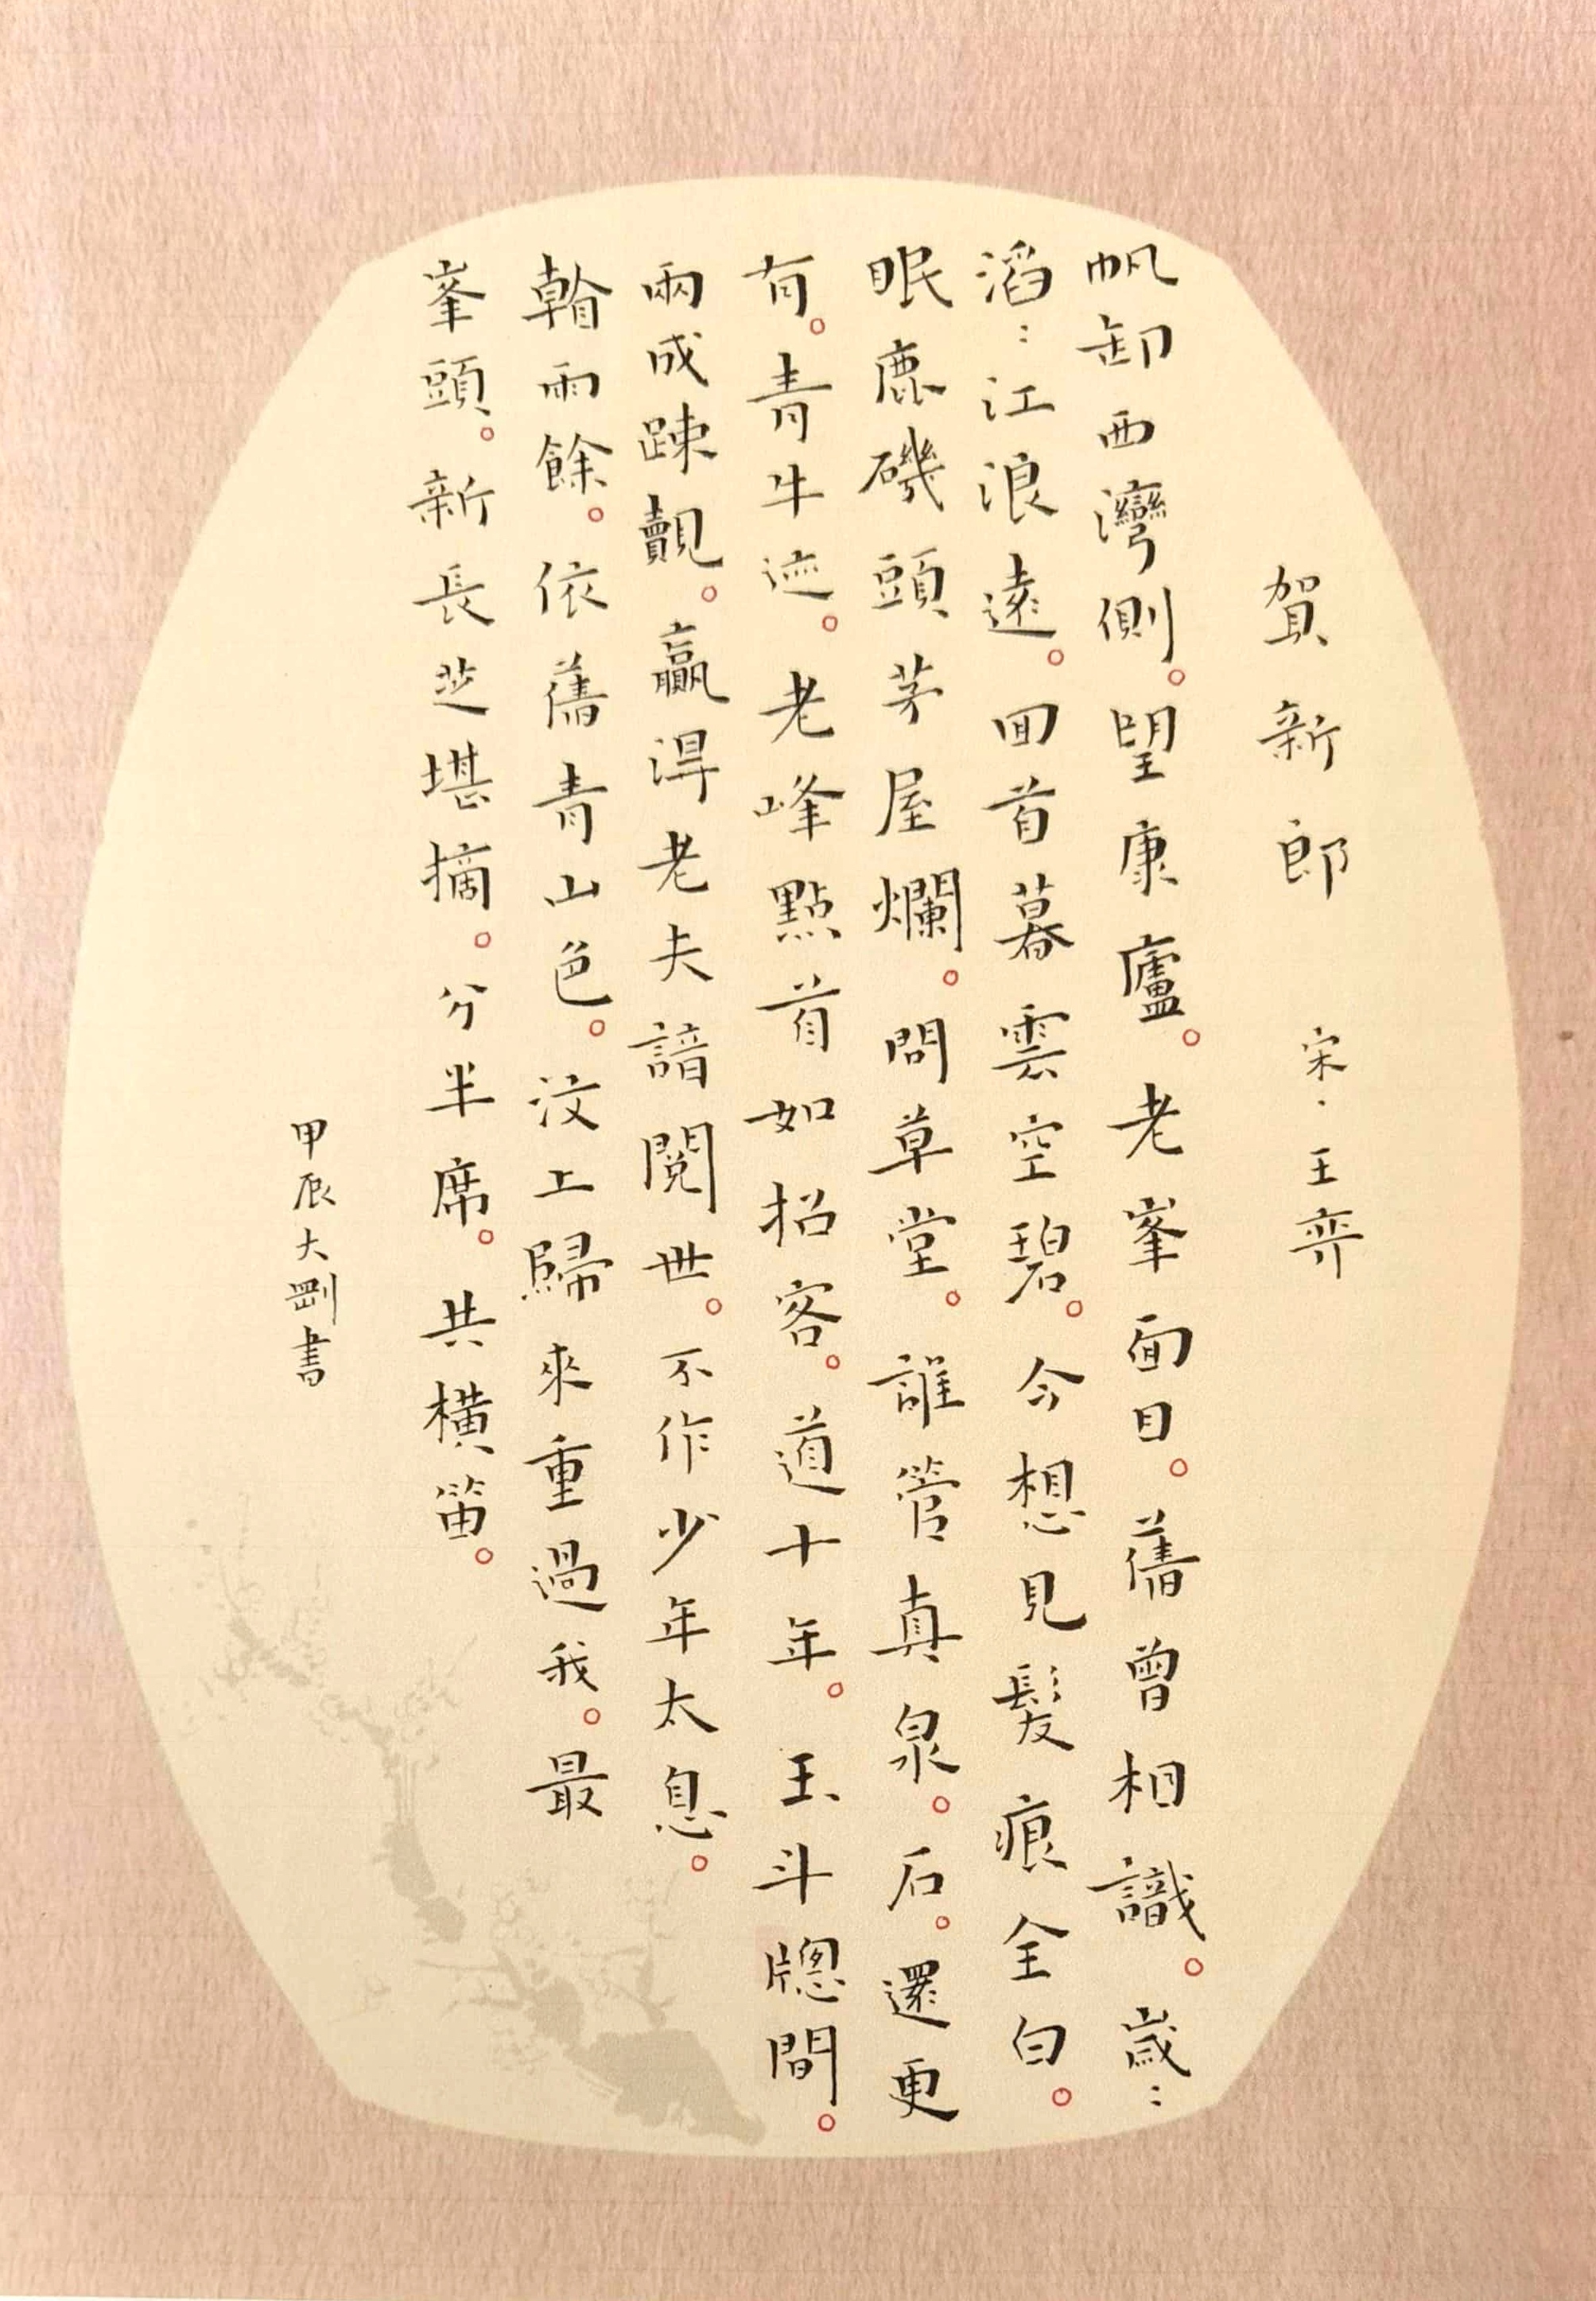 賀新郎 宋·王弈
帆卸西灣側。望康廬。老峯面目。舊曾相識。歲〻
滔〻江浪遠。回首暮雲空碧。今想見髮痕全白。
眠鹿磯頭茅屋爛。問草堂。誰管真泉。石。還更
有。青牛迹。老峰點首如招客。道十年。玉斗牕間。
兩成疎覿。贏得老夫諳閱世。不作少年太息。
雨餘。依舊青山色。汶上歸來重過我。最
峯頭。新長芝堪摘。分半席。共橫笛。
甲辰大剛書